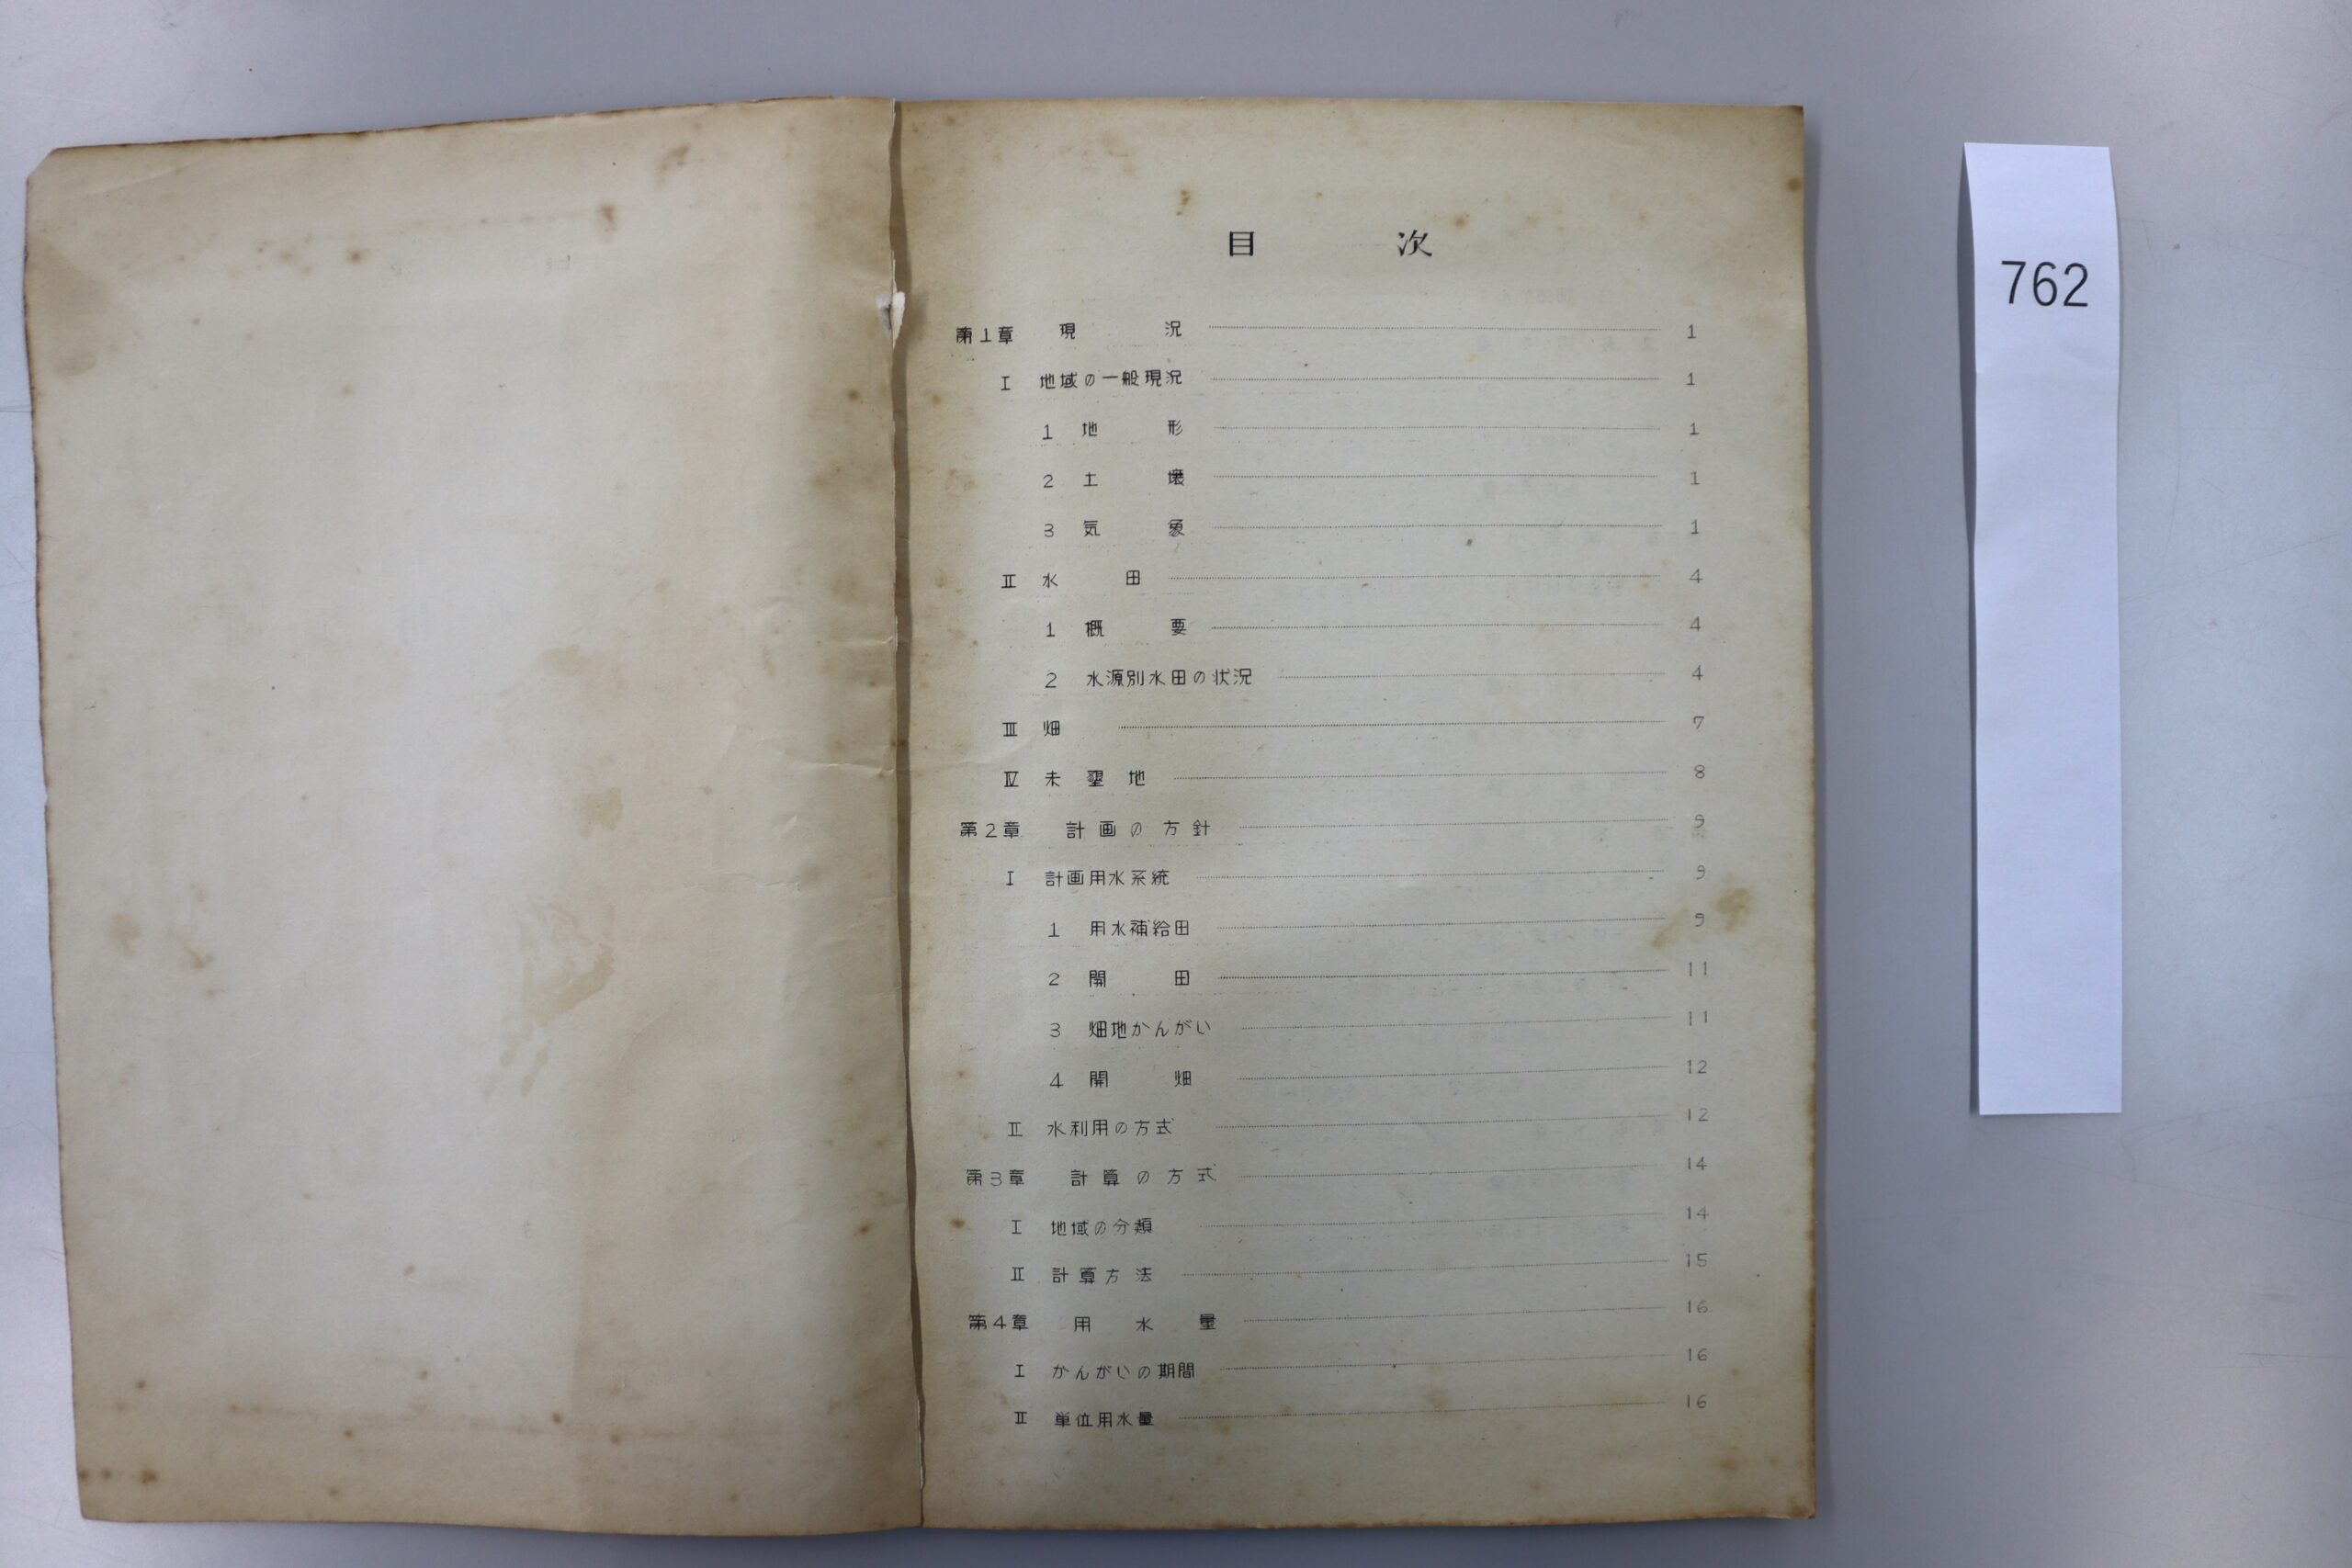 目 次
第1章 現 況 1
Ⅰ 地域の一般現況 1
1 地 形 1
2 土 壌 1
3 気 象 1
Ⅱ 水 田 4
1 概 要 4
2 水源別水田の状況 4
Ⅲ 畑 7
Ⅳ 未墾地 8
第2章 計画の方針 9
Ⅰ 計画用水系統 9
1 用水補給田 9
2 開 田 11
3 畑地かんがい 11
4 開 畑 12
Ⅱ 水利用の方式 12
第3章 計算の方式 14
Ⅰ 地域の分類 14
Ⅱ 計算方法 15
第4章 用水量 16
Ⅰ かんがいの期間 16
Ⅱ 単位用水量 16
762